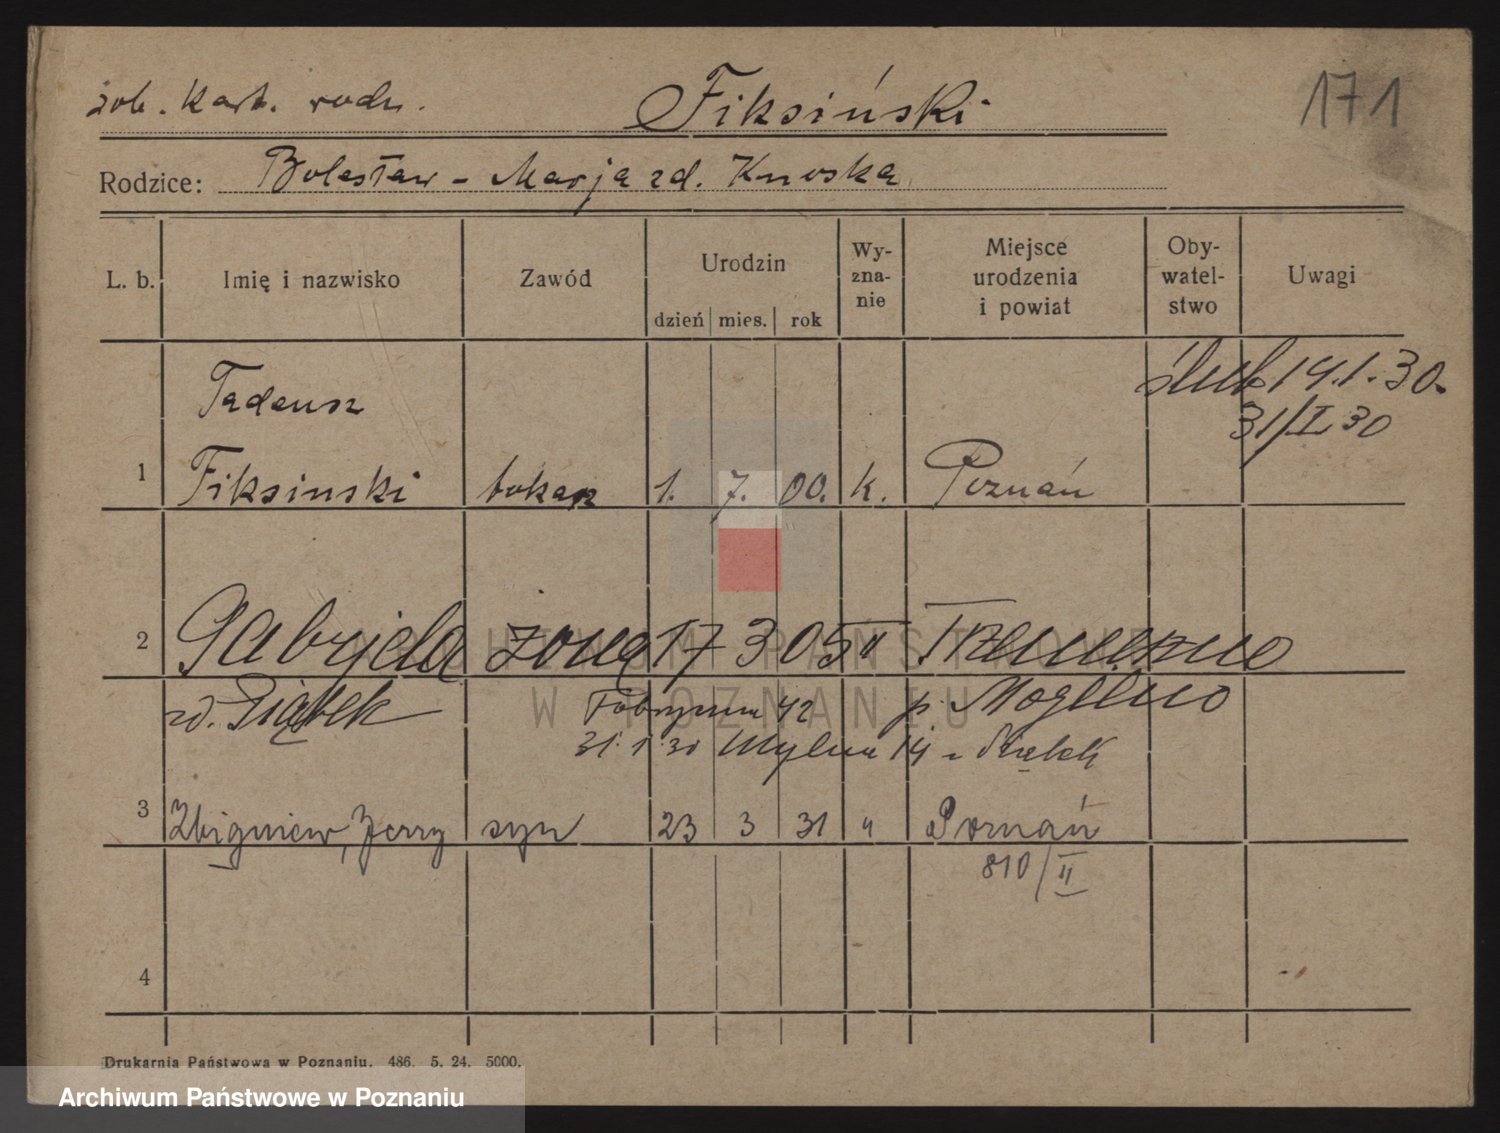 zob. Kart. rodz. Fiksiński 171
Rodzice: Bolesław - Marja zd. Knoska
L. b. Imię i nazwisko Zawód Urodzin dzień mies. rok Wy-zna-nie Miejsce urodzenia i powiat Oby-watel-stwo Uwagi
ślub 14.1.30.
31/I 30
Tadeusz
1 Fiksinski tokarz 1. 7. 00. k. Poznań
2 Gabryela żona 17 3 05 " Trzemeszno
zd. Piątek 42 p. Mogilno
31.1.30 Mylna 14
3 Zbigniew, Jerzy syn 23 3 31 " Poznań
810/II
4
Drukarnia Państwowa w Poznaniu. 486. 5. 24. 5000.
ARCHIWUM PAŃSTWOWE
W POZNANIU
Archiwum Państwowe w Poznaniu